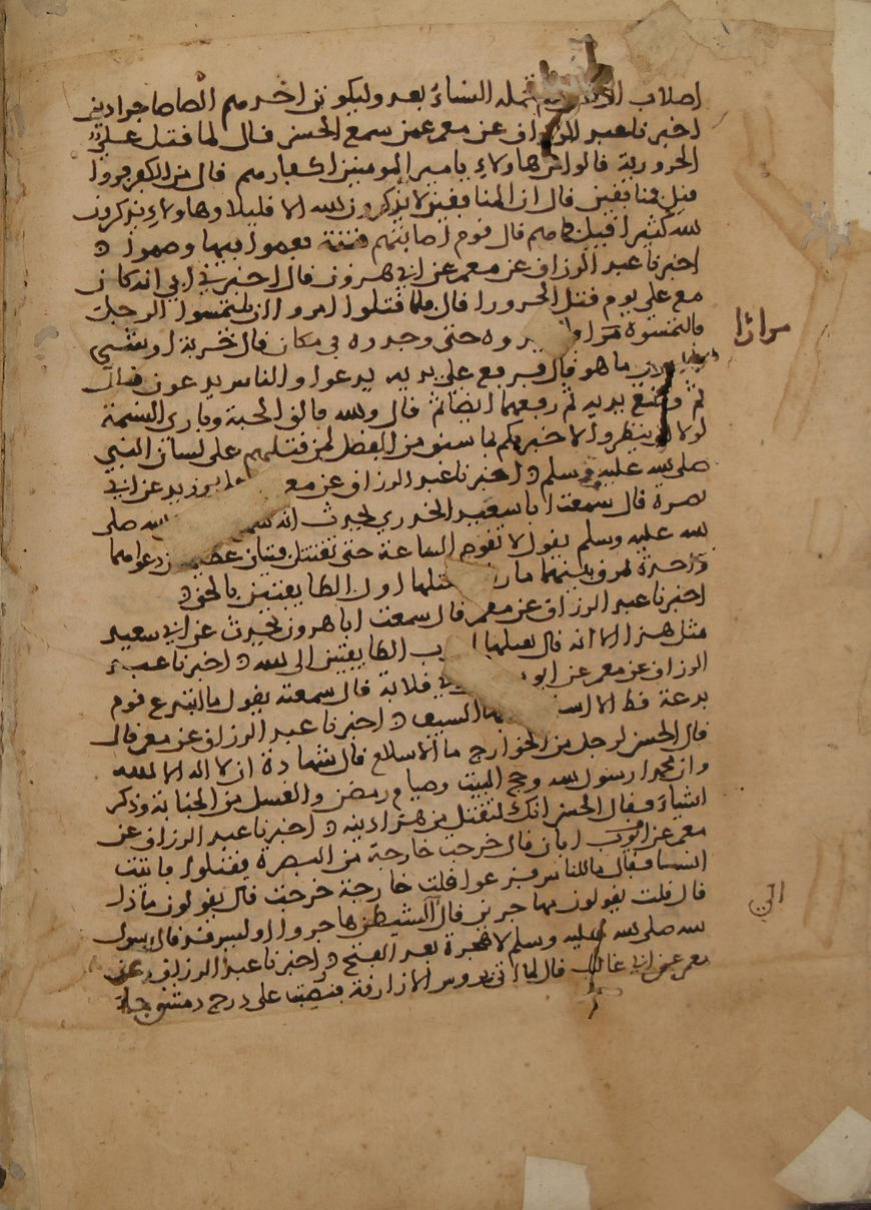 اصلاب الر تحمله النساء بعد وليكونن اخرهم الصاصا جرادين
اخبرنا عبد الرزاق عن معمر عمن سمع الحسن قال لما قتل علي
الحرورية قالوا من هاولاء يا امير المومنين اكفار هم قال من الكفر فروا
قيل فمنافقين قال ان المنافقين لا يذكرون الله الا قليلا وهاولاء يذكرون
الله كثيرا قيل فما هم قال قوم اصابتهم فتنة فعموا فيها وصموا
اخبرنا عبد الرزاق عن معمر عن ابي هرون قال اخبرني ابي انه كان
مع علي يوم قتل الحرورا قال فلما قتلوا امروا ان يلتمسوا الرجل
فالتمسوه مرارا يجدوه حتى وجدوه في مكان قال خربة او شي
مرارا
لا ادري ما هو قال فرفع علي يديه يدعوا والناس يدعون قال
ثم وضع يديه ثم رفعهما ايضا ثم قال والله فالق الحبة وباري النسمة
لولا ان ينظروا لاخبرتكم بما سبق من الفضل لمن قتلهم على لسان النبي
صلى الله عليه وسلم اخبرنا عبد الرزاق عن معمر بن زيد عن ابي
نضرة قال سمعت ابا سعيد الخدري يحدث انه سمع الله صلى
الله عليه وسلم يقول لا تقوم الساعة حتى تقتتل فئتان دعواهما
واحدة تمرق بينهما مارقة يقتلها اولى الطايفتين بالحق
اخبرنا عبد الرزاق عن معمر قال سمعت ابا هرون يحدث عن ابي سعيد
مثل هذا الا انه قال يقتلها اقرب الطايفتين الى الله اخبرنا عبد
الرزاق عن معمر عن ايوب قلابة قال سمعته يقول ما ابتدع قوم
بدعة قط الا بها السيف اخبرنا عبد الرزاق عن معمر قال
قال الحسن لرجل من الخوارج ما الاسلام قال شهادة ان لا اله الا الله
وان محمدا رسول الله وحج البيت وصيام رمضن والغسل من الجنابة وذكر
اشياء فقال الحسن انك لتقتل من هذا دينه اخبرنا عبد الرزاق عن
معمر عن ابان قال خرجت خارجة من البصرة فقتلوا فاتيت
انسا فقال ما للناس فزعوا قلت خارجة خرجت قال يقولون ماذا
اني
قال قلت يقولون مهاجرين قال الشيطن هاجروا اوليس قد قال رسول
الله صلى الله عليه وسلم لا هجرة بعد الفتح اخبرنا عبد الرزاق عن
معمر عن ابي غالب قال لما اتي بروس الازارقة فنصبت على درج دمشق جاء